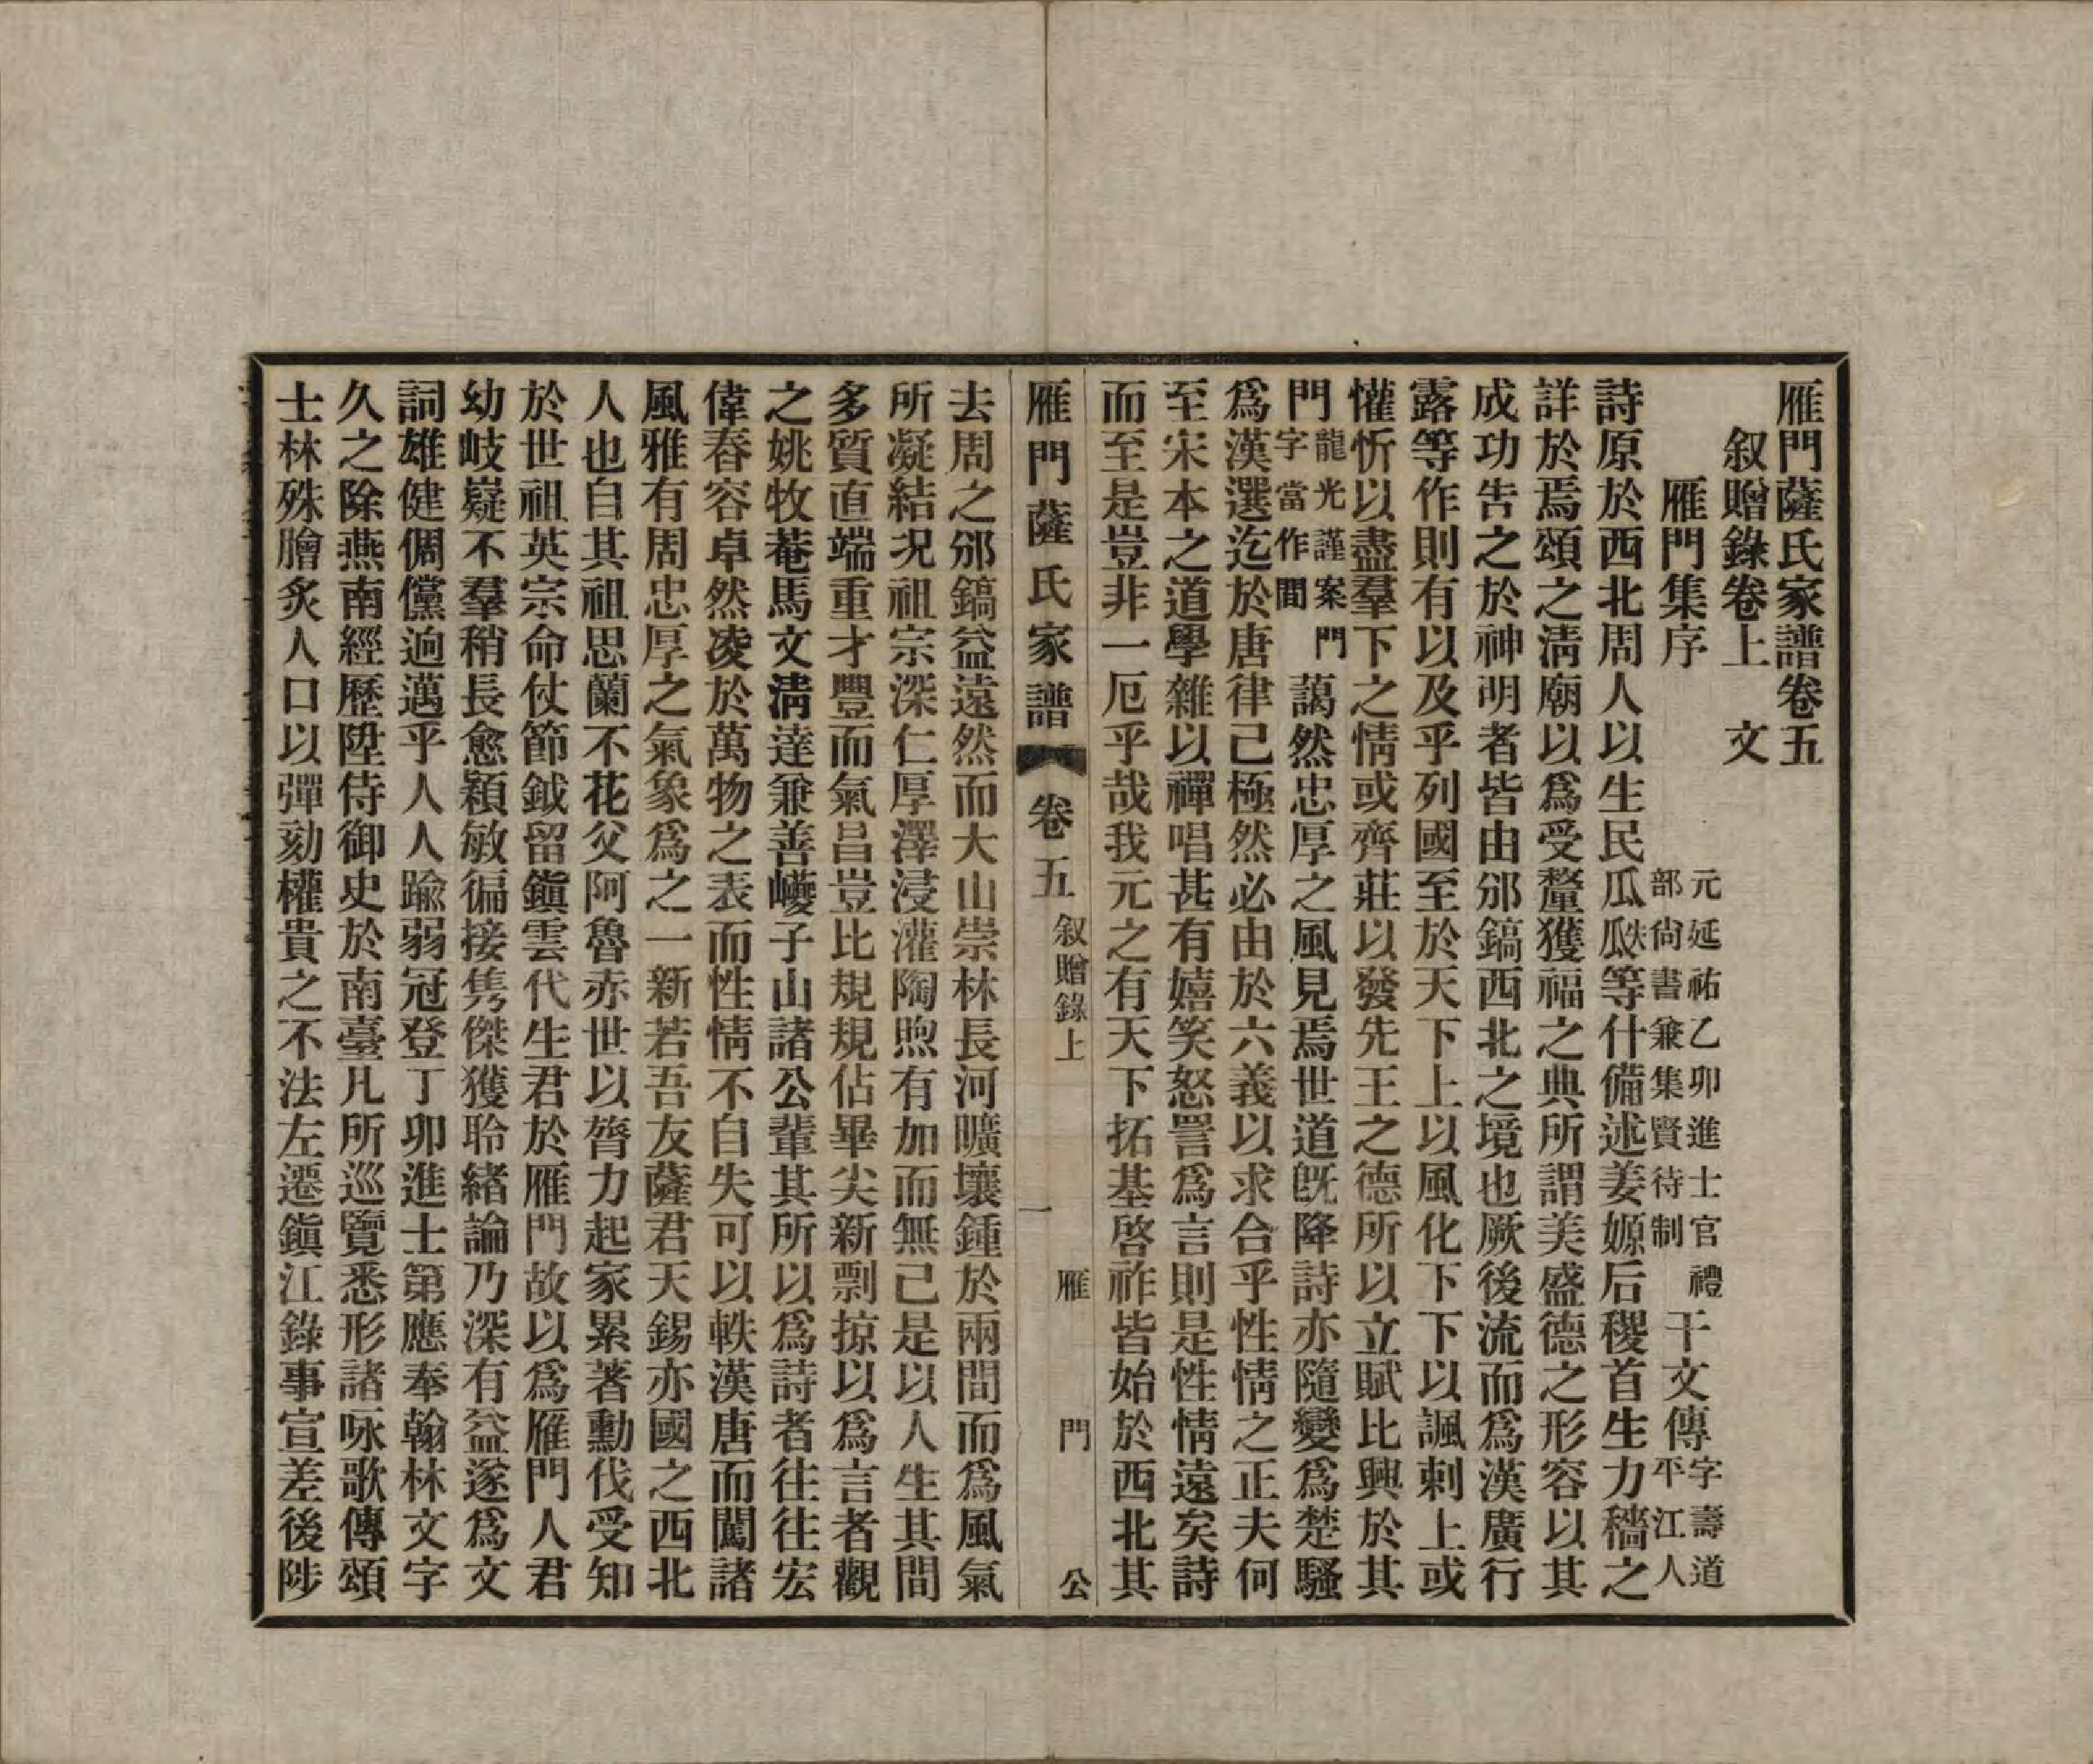 雁門薩氏家譜卷五
叙贈錄卷上　文
雁門集序　元延祐乙卯進士官禮部尙書兼集賢待制　干文傳　字壽道平江人
詩原於西北周人以生民瓜瓜瓞等什備述姜嫄后稷首生力穡之
詳於焉頌之淸廟以爲受釐獲福之典所謂美盛德之形容以其
成功告之於神明者皆由邠鎬西北之境也厥後流而爲漢廣行
露等作則有以及乎列國至於天下上以風化下下以諷刺上或
懽忻以盡羣下之情或齊莊以發先王之德所以立賦比興於其
門龍光謹案門字當作間藹然忠厚之風見焉世道旣降詩亦隨變爲楚騷
爲漢選迄於唐律己極然必由於六義以求合乎性情之正夫何
至宋本之道學雜以禪唱甚有嬉笑怒詈爲言則是性情遠矣詩
而至是豈非一厄乎哉我元之有天下拓基啓祚皆始於西北其
雁門薩氏家譜　卷五　叙贈錄上　一　雁門公
去周之邠鎬益遠然而大山崇林長河曠壤鍾於兩間而爲風氣
所凝結况祖宗深仁厚澤浸灌陶煦有加而無己是以人生其間
多質直端重才豐而氣昌豈比規規佔畢尖新剽掠以爲言者觀
之姚牧菴馬文淸達兼善巙子山諸公輩其所以爲詩者往往宏
偉春容卓然凌於萬物之表而性情不自失可以軼漢唐而闖諸
風雅有周忠厚之氣象爲之一新若吾友薩君天錫亦國之西北
人也自其祖思蘭不花父阿魯赤世以膂力起家累著勳伐受知
於世祖英宗命仗節鉞留鎭雲代生君於雁門故以爲雁門人君
幼岐嶷不羣稍長愈穎敏徧接雋傑獲聆緖論乃深有益遂爲文
詞雄健倜儻逈邁乎人人踰弱冠登丁卯進士第應奉翰林文字
久之除燕南經歷陞侍御史於南臺凡所巡覽悉形諸咏歌傳頌
士林殊膾炙人口以彈劾權貴之不法左遷鎭江錄事宣差後陟